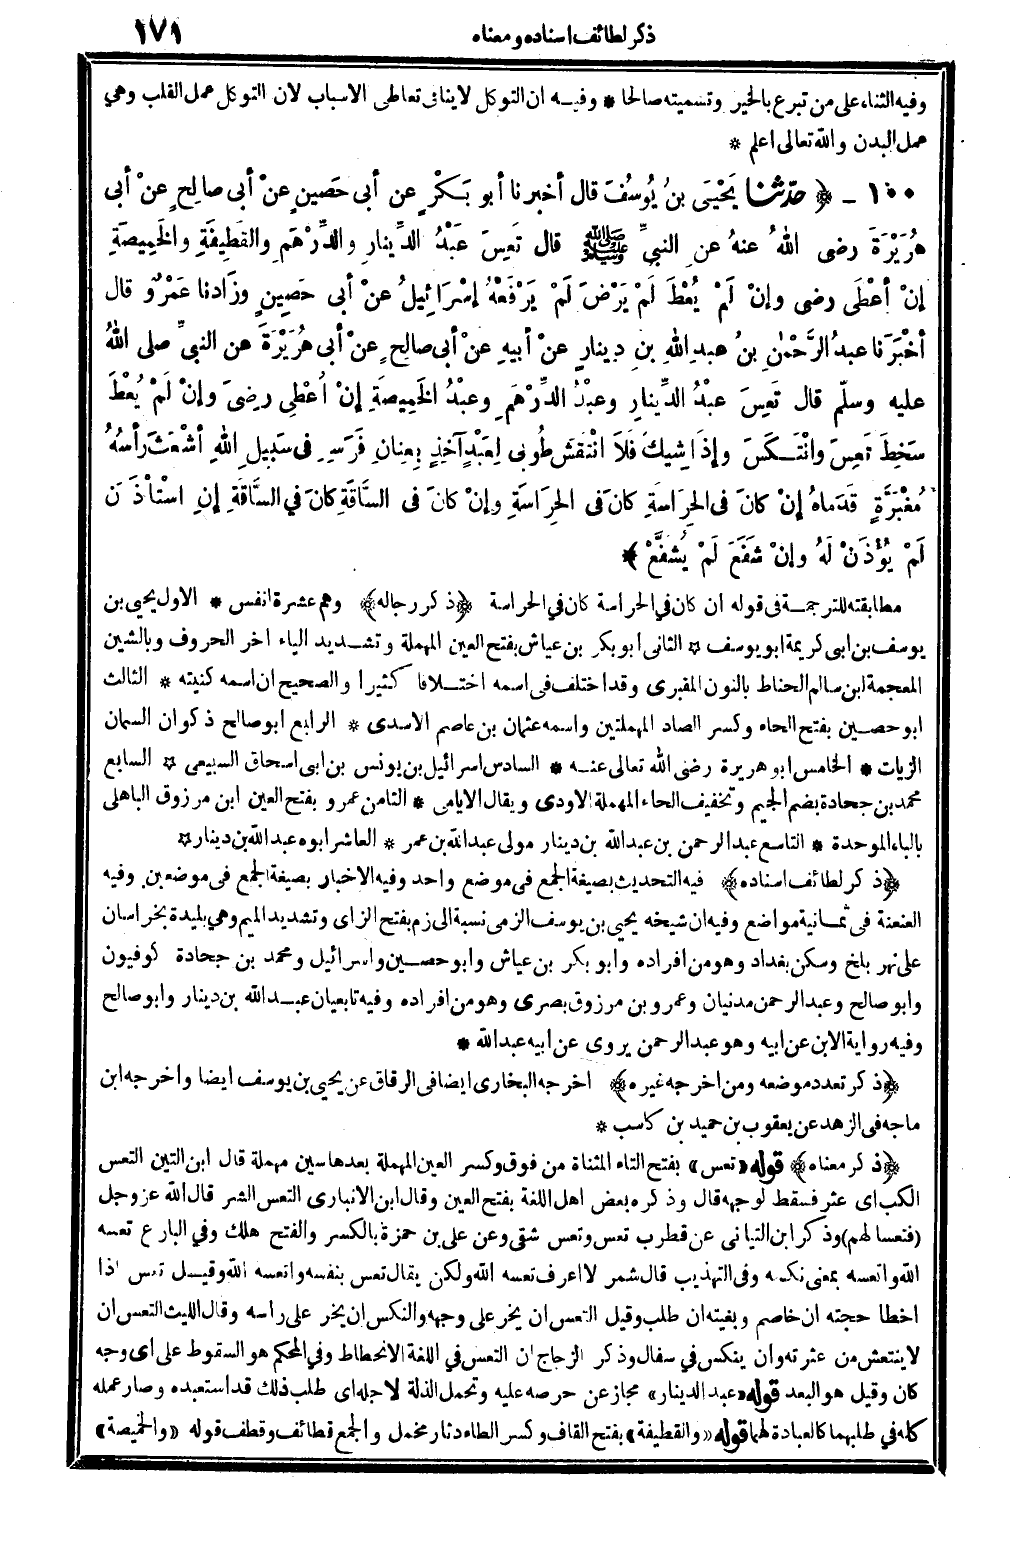 ذكر لطائف اسناده ومعناه ١٧١
وفيه الثناء على من تبرع بالخير وتسميته صالحا * وفيـه ان التوكل لاينافى تعاطى الاسباب لان التوكل عمل القلب وهي
عمل البدن والله تعالى اعلم *
١٠٠ ـ ﴿ حدثنا يَحْيَى بنُ يُوسُفَ قال أخبرنا أبو بَكْرٍ عن أبى حَصِينٍ عنْ أبى صالِحٍ عنْ أبى
هُرَيْرَةَ رضى اللهُ عنهُ عنِ النبىِّ ﷺ قال تَعِسَ عَبْدُ الدِّينارِ والدِّرْهَمِ والقَطِيفَةِ والخَمِيصَةِ
إنْ أُعْطَى رضى وإنْ لَمْ يُعْطَ لَمْ يَرْضَ لَمْ يَرْفَعْهُ إسْرَائِيلُ عنْ أبى حَصِينٍ وزَادنا عَمْرٌو قال
أخْبَرَنا عبدُ الرَّحْمٰنِ بنُ عبدِ اللهِ بنِ دِينارٍ عنْ أبيهِ عنْ أبى صالِحٍ عنْ أبى هُرَيْرَةَ عن النبىِّ صلى اللهُ
عليه وسلّم قال تَعِسَ عبْدُ الدِّينارِ وعبْدُ الدِّرْهَمِ وعبْدُ الخَمِيصَةِ إنْ أُعْطِى رضىَ وإنْ لَمْ يُعْطَ
سَخِطَ تَعِسَ وانْتَـكَسَ وإذَا شِيكَ فَلَا انْتَقَشَ طُوبى لِعَبْدٍ آخِذٍ بِعِنانِ فَرَسِهِ فى سَبِيلِ اللهِ أشْعَثَ رأسُهُ
مُغْبَرَّةٍ قدَماهُ إنْ كانَ فى الحِرَاسَةِ كانَ فى الحِرَاسَةِ وإنْ كانَ فى السَّاقَةِ كانَ في السَّاقَةِ إنِ اسْتأْذَنَ
لَمْ يُؤْذَنْ لَهُ وإنْ شَفَعَ لَمْ يُشَفَّعْ ﴾ *
مطابقته للترجمـة فى قوله ان كان في الحراسة كان في الحراسة ﴿ذكر رجاله﴾ وهم عشرة انفس * الاول يحيى بن
يوسف بن ابى كريمة ابو يوسف * الثانى ابو بكر بن عياش بفتح العين المهملة وتشـديد الياء اخر الحروف وبالشين
المعجمة ابن سالم الحناط بالنون المقبرى وقد اختلف فى اسمه اختـلافا كثيرا والصحيح ان اسمه كنيته * الثالث
ابو حصـين بفتح الحاء وكسر الصاد المهملتين واسمه عثمان بن عاصم الاسدى * الرابع ابو صالح ذكوان السمان
الزيات * الخامس ابو هريرة رضى الله تعالى عنـه * السادس اسرائيل بن يونس بن ابى اسحاق السبيعى * السابع
محمد بن جحادة بضم الجيم وتخفيف الحاء المهملة الاودى ويقال الايامى * الثامن عمرو بفتح العين ابن مرزوق الباهلى
بالباء الموحدة * التاسع عبد الرحمن بن عبد الله بن دينار مولى عبد الله بن عمر * العاشر ابوه عبد الله بن دينار *
﴿ذكر لطائف اسناده﴾ فيه التحديث بصيغة الجمع فى موضع واحد وفيه الاخبار بصيغة الجمع فى موضعين وفيه
العنعنة فى ثمانية مواضع وفيه ان شيخه يحيى بن يوسف الزمى نسبة الى زم بفتح الزاى وتشديد الميم وهى بليدة بخراسان
على نهر بلخ وسكن بغداد وهو من افراده وابو بكر بن عياش وابو حصـين واسرائيل ومحمد بن جحادة كوفيون
وابو صالح وعبد الرحمن مدنيان وعمرو بن مرزوق بصرى وهو من افراده وفيه تابعيان عبـد الله بن دينار وابو صالح
وفيه رواية الابن عن ابيه وهو عبد الرحمن يروى عن ابيه عبد الله *
﴿ذكر تعدد موضعه ومن اخرجه غيره﴾ اخرجه البخارى ايضا فى الرقاق عن يحيى بن يوسف ايضا واخرجه ابن
ماجه فى الزهد عن يعقوب بن حميد بن كاسب *
﴿ذكر معناه﴾ قوله «تعس» بفتح التاء المثناة من فوق وكسر العين المهملة بعدها سين مهملة قال ابن التين التعس
الكب اى عثر فسقط لوجهه قال وذكره بعض اهل اللغة بفتح العين وقال ابن الانبارى التعس الشر قال الله عز وجل
(فتعسا لهم) وذكر ابن التيانى عن قطرب تعس وتعس شقى وعن على بن حمزة بالكسر والفتح هلك وفي البارع تعسه
الله واتعسه بمعنى نكسه وفى التهذيب قال شمر لا اعرف تعسه الله ولكن يقال تعس بنفسه واتعسه الله وقيـل تعس اذا
اخطا حجته ان خاصم وبغيته ان طلب وقيل التعس ان يخر على وجهه والنكس ان يخر على راسه وقال الليث التعس ان
لا ينتعش من عثرته وان ينكس في سفال وذكر الزجاج ان التعس في اللغة الانحطاط وفي المحكم هو السقوط على اى وجه
كان وقيل هو البعد قوله «عبد الدينار» مجاز عن حرصه عليه وتحمل الذلة لاجله اى طلب ذلك قد استعبده وصار عمله
كله في طلبهما كالعبادة لهما قوله «والقطيفة» بفتح القاف وكسر الطاء دثار مخمل والجمع قطائف وقطف قوله «والخميصة»